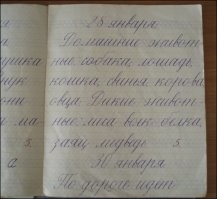 25 января
ушка
Домашние живот-
ные собака, лошадь,
кошка, свинья, корова,
овца. Дикие живот-
ма-
ные: лиса волк белка,
5
заяц, медведь. 5
а
30 января
По дороге идёт